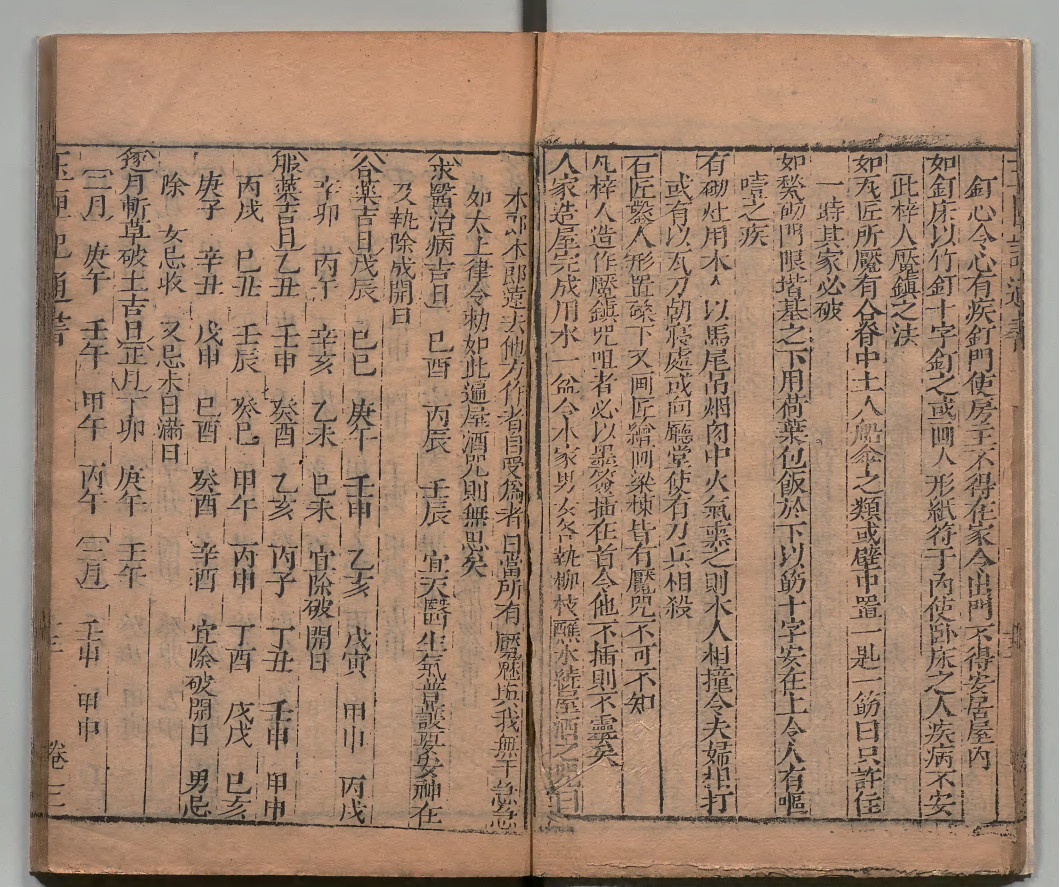 釘心令心有疾釘門使房主不得在家令出門不得安居屋內
如釘床以竹釘十字釘之或画人形紙符于內使卧床之人疾病不安
此梓人魘鎮之法
如瓦匠所魘有合脊中土人船傘之類或壁中置一匙一筯曰只許住
一時其家必破
如甃砌門限墻基之下用荷葉包飯於下以筯十字安在上令人有嘔
噎之疾
有砌灶用木人以馬尾吊烟囱中火氣熏之則木人相撞令夫婦啀打
或有以瓦刀朝寢處或向廳堂使有刀兵相殺
石匠鑿人形置磉下又画匠繪画梁棟皆有魘咒不可不知
凡梓人造作魘鎮咒咀者必以墨簽插在首令他不插則不靈矣
人家造屋完成用水一盆令本家男女各執柳枝蘸水繞屋洒之咒曰
木郎木郎遠去他方作者自受為者自當所有魘魅與我無干急急
如太上律令勅如此遍屋洒咒則無患矣
求醫治病吉日 己酉 丙辰 壬辰 宜天醫生氣普護要安神在
及執除成開日
合藥吉日戊辰 己巳 庚午 壬申 乙亥 戊寅 甲申 丙戌
辛卯 丙午 辛亥 乙未 己未 宜除破開日
服藥吉日乙丑 壬申 癸酉 乙亥 丙子 丁丑 壬申 甲申
丙戌 己丑 壬辰 癸巳 甲午 丙申 丁酉 戊戌 己亥
庚子 辛丑 戊申 己酉 癸酉 辛酉 宜除破開日 男忌
除 女忌收 又忌未日滿日
逐月斬草破土吉日 正月 丁卯 庚午 壬午
二月 庚午 壬午 甲午 丙午 三月 壬申 甲申
玉匣記通書 卷三